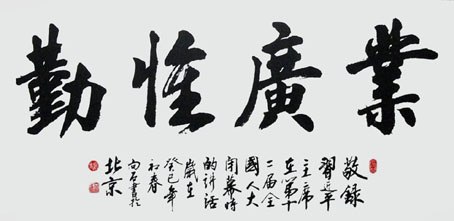 業廣惟勤
敬録
習近平
主席
在第十
二届全
國人大
閉幕時
的講話
歲在
癸巳年
初春
向石書於
北京